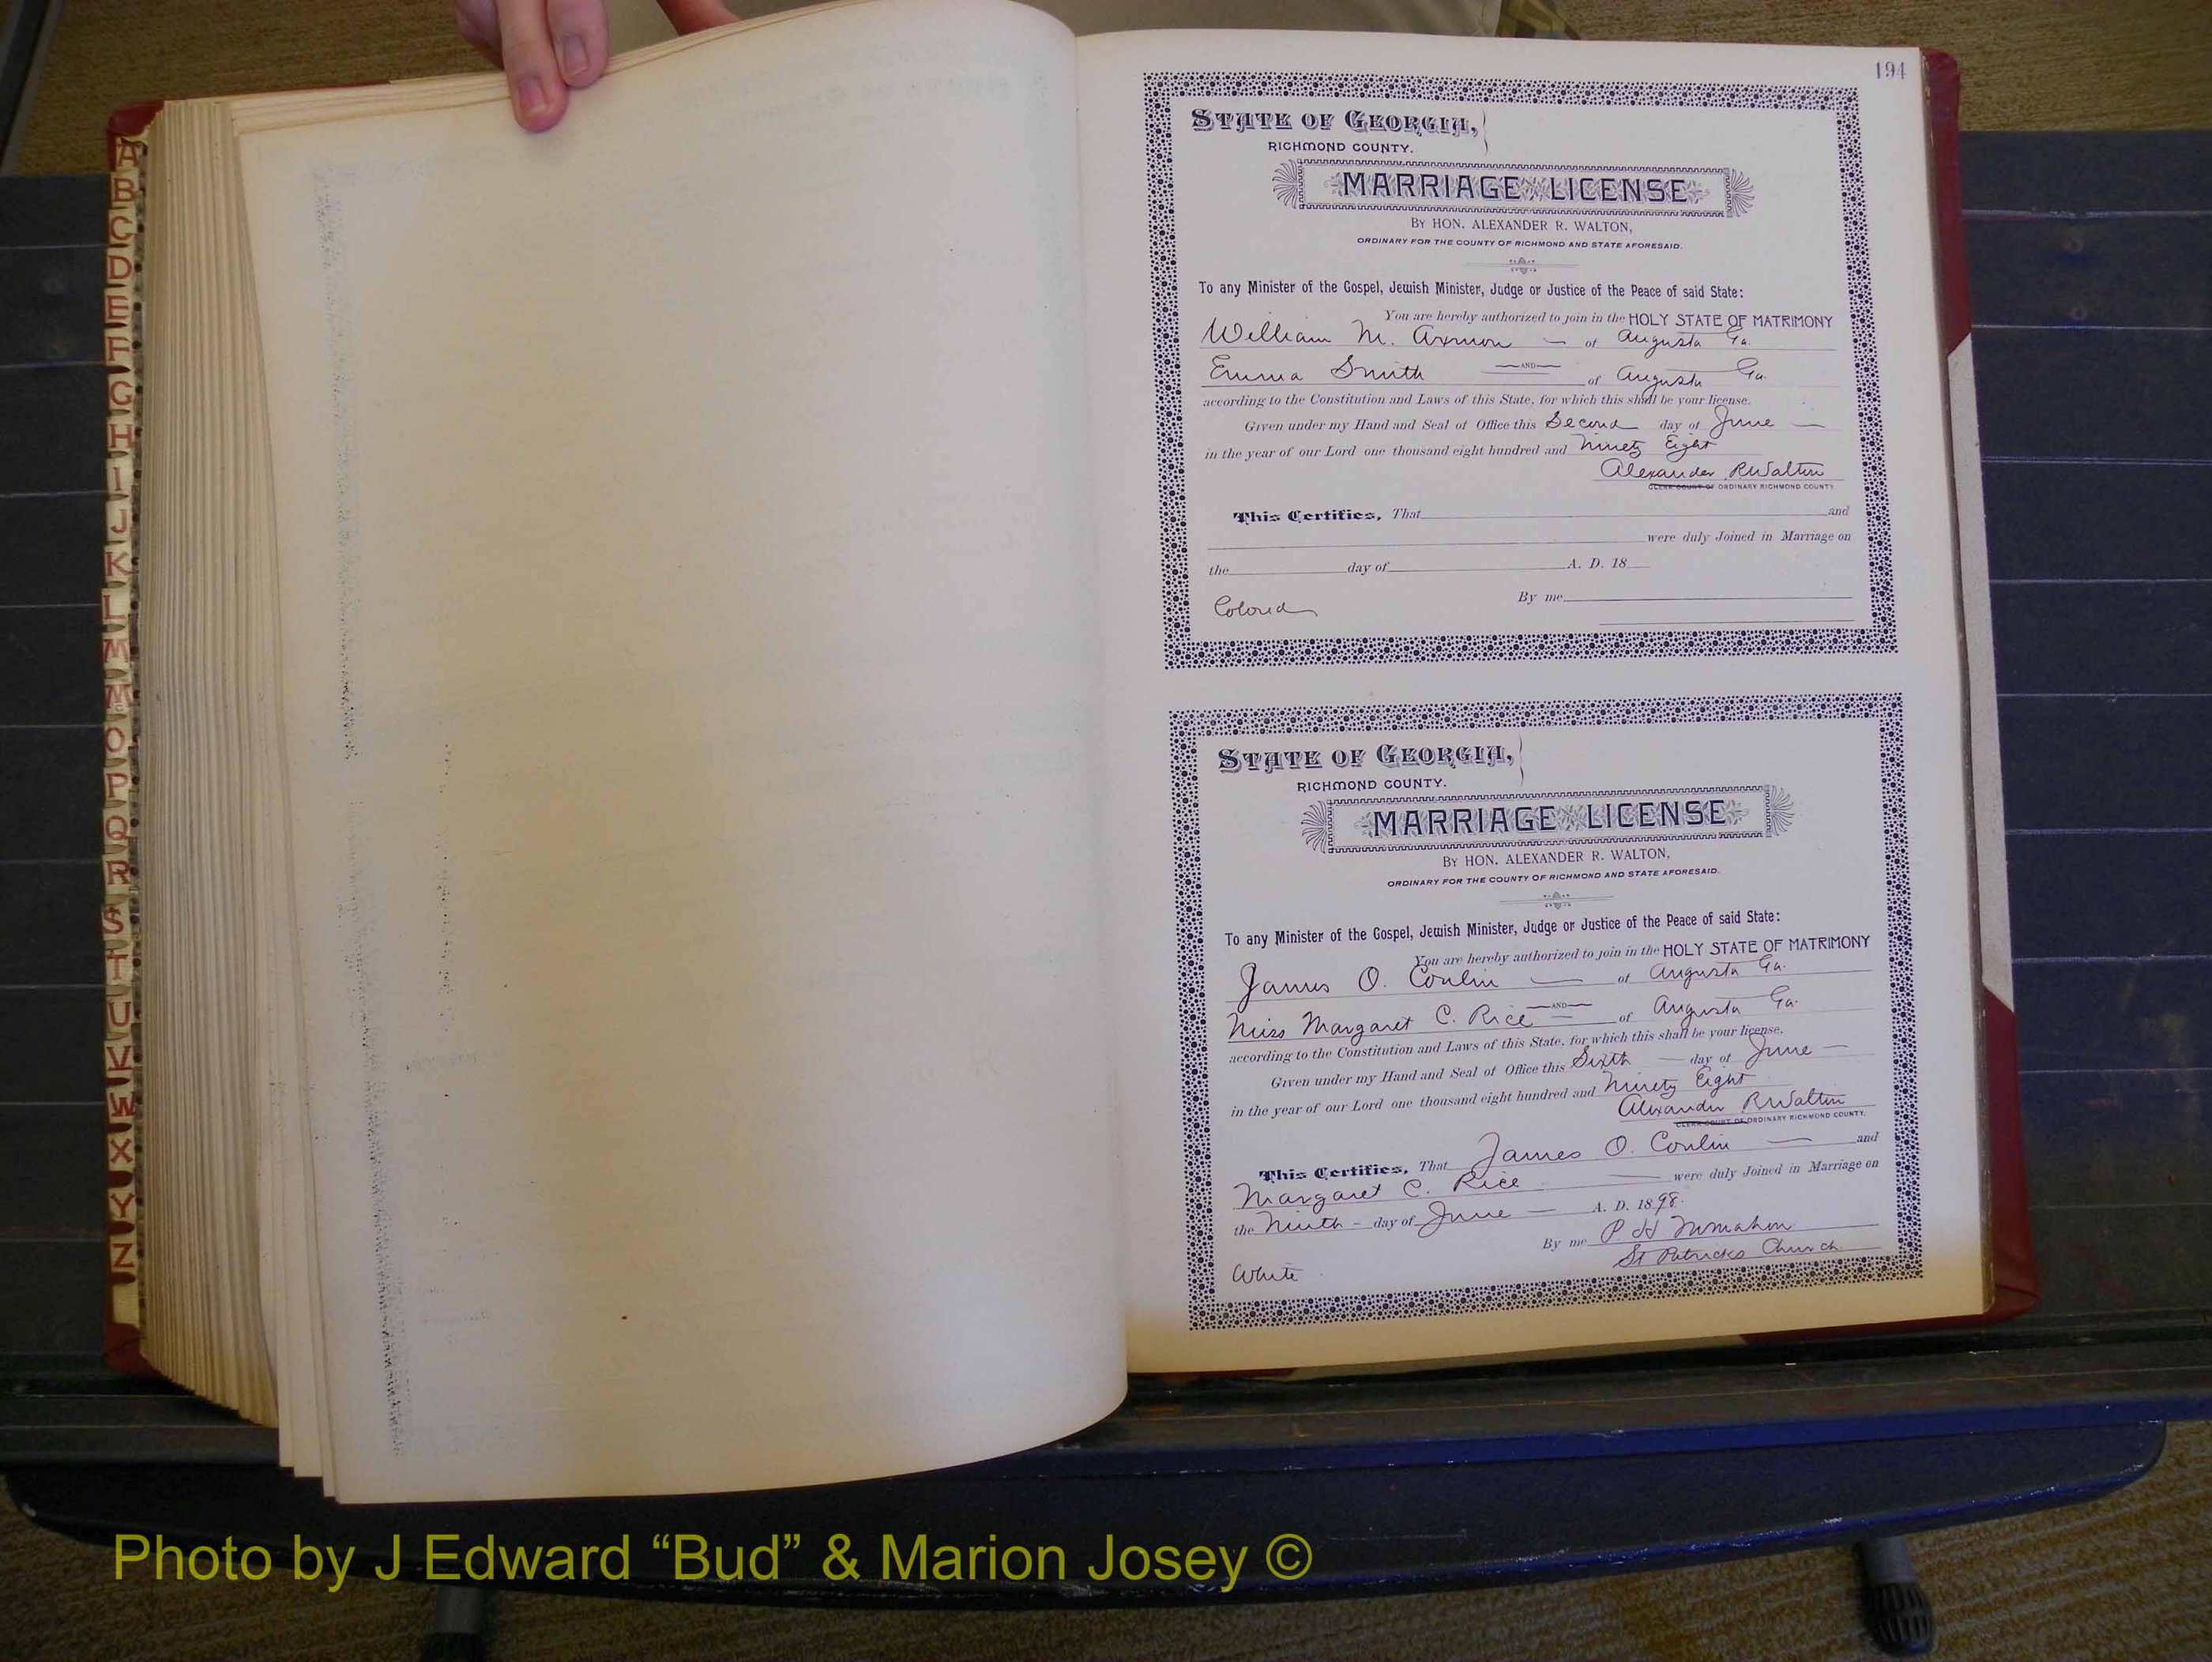 A
B
C
D
E
F
G
H
I
J
K
L
M
Mc
O
P
Q
R
S
T
U
V
W
X
Y
Z
194
STATE OF GEORGIA,
RICHMOND COUNTY.
MARRIAGE LICENSE
BY HON. ALEXANDER R. WALTON,
ORDINARY FOR THE COUNTY OF RICHMOND AND STATE AFORESAID.
To any Minister of the Gospel, Jewish Minister, Judge or Justice of the Peace of said State:
You are hereby authorized to join in the HOLY STATE OF MATRIMONY
William M. Axmon — of Augusta Ga.
AND
Emma Smith of Augusta Ga.
according to the Constitution and Laws of this State, for which this shall be your license.
Given under my Hand and Seal of Office this Second day of June —
in the year of our Lord one thousand eight hundred and Ninety Eight
Alexander R Walton
CLERK COURT OF ORDINARY RICHMOND COUNTY.
This Certifies, That and
were duly Joined in Marriage on
the day of A. D. 18
By me
Colored
STATE OF GEORGIA,
RICHMOND COUNTY.
MARRIAGE LICENSE
BY HON. ALEXANDER R. WALTON,
ORDINARY FOR THE COUNTY OF RICHMOND AND STATE AFORESAID.
To any Minister of the Gospel, Jewish Minister, Judge or Justice of the Peace of said State:
You are hereby authorized to join in the HOLY STATE OF MATRIMONY
James O. Conlin — of Augusta Ga.
AND
Miss Margaret C. Rice of Augusta Ga.
according to the Constitution and Laws of this State, for which this shall be your license.
Given under my Hand and Seal of Office this Sixth — day of June —
in the year of our Lord one thousand eight hundred and Ninety Eight
Alexander R Walton
CLERK COURT OF ORDINARY RICHMOND COUNTY.
This Certifies, That James O. Conlin — and
Margaret C. Rice — were duly Joined in Marriage on
the Ninth – day of June — A. D. 1898.
By me P H McMahon
St Patricks Church
White
Photo by J Edward “Bud” & Marion Josey ©